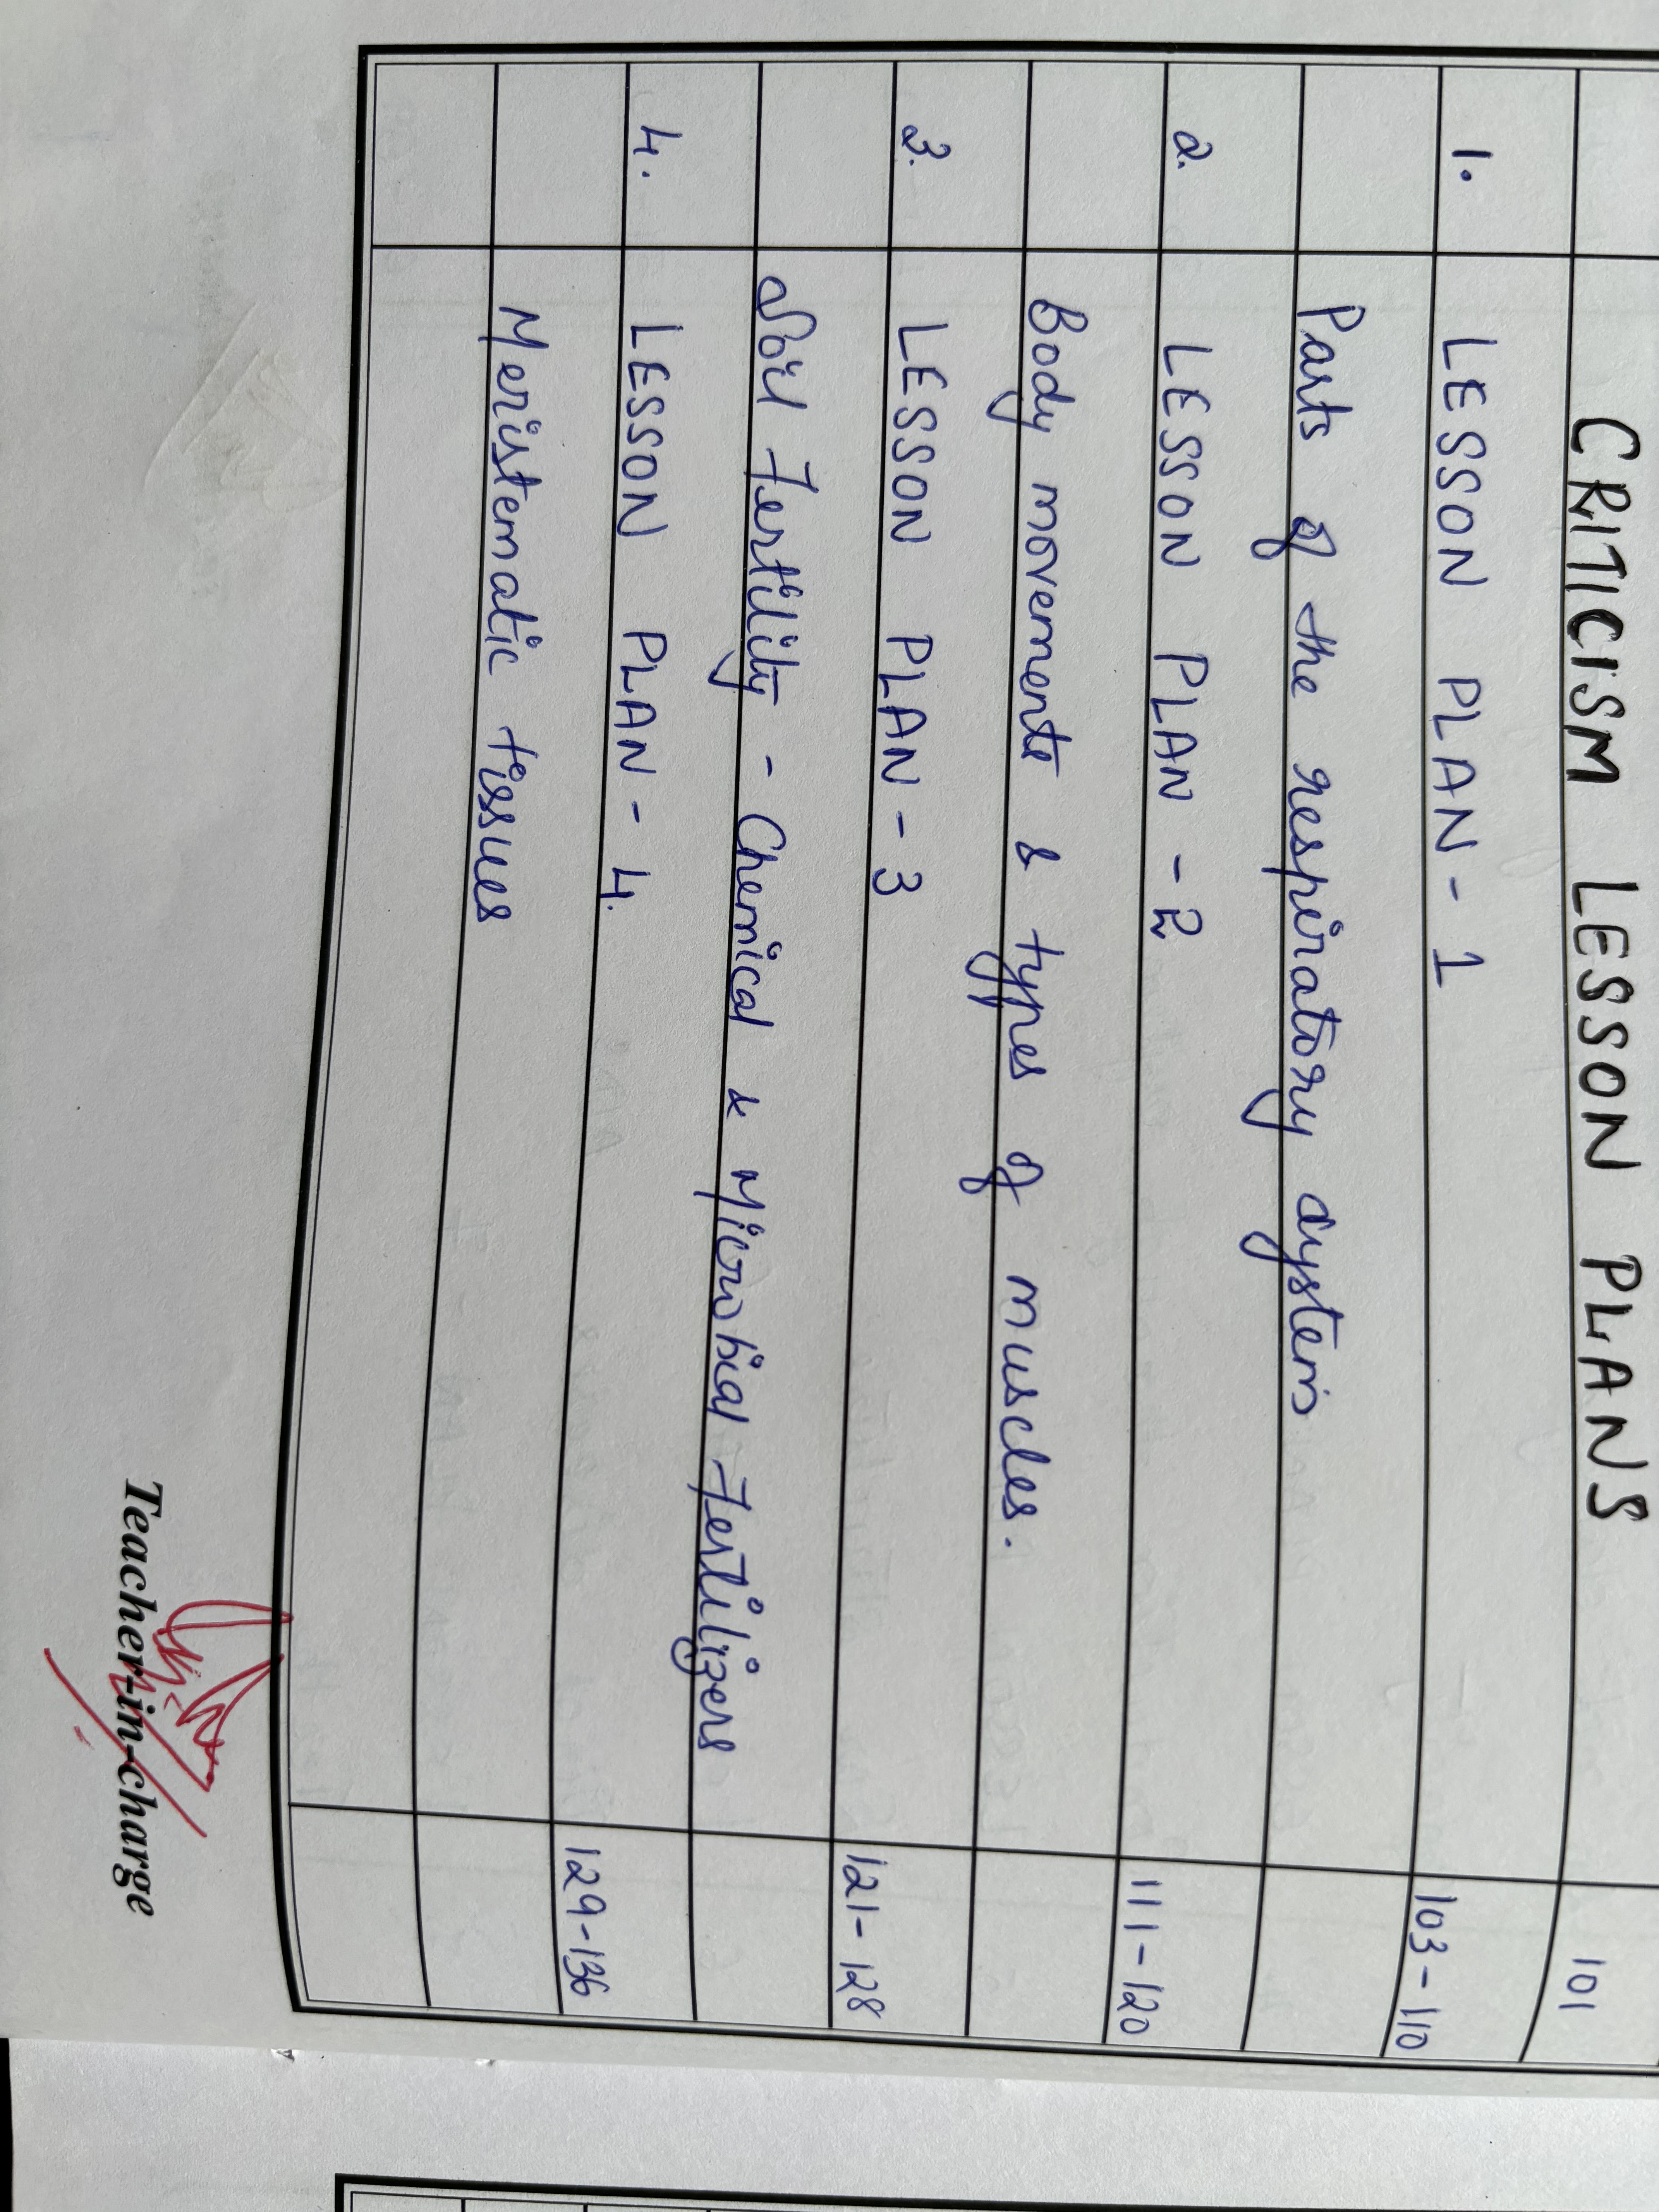 CRITICISM LESSON PLANS 101
1. LESSON PLAN - 1 103-110
Parts of the respiratory system
2. LESSON PLAN - 2 111-120
Body movements & types of muscles.
3. LESSON PLAN - 3 121-128
Soil Fertility - Chemical & Microbial Fertilizers
4. LESSON PLAN - 4. 129-136
Meristematic tissues
Teacher-in-charge